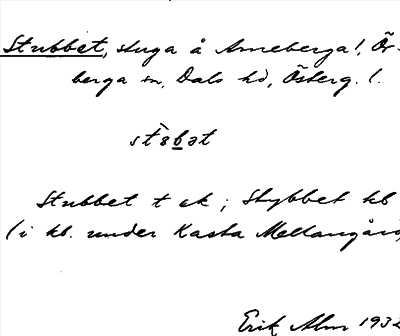 Stubbet, stuga å Arneberga l, Ör-
berga sn, Dals hd, Österg. l.
Stubbet t ek; Stybbet kb
(i kb. under Kasta Mellangård,
Erik Alm 1932